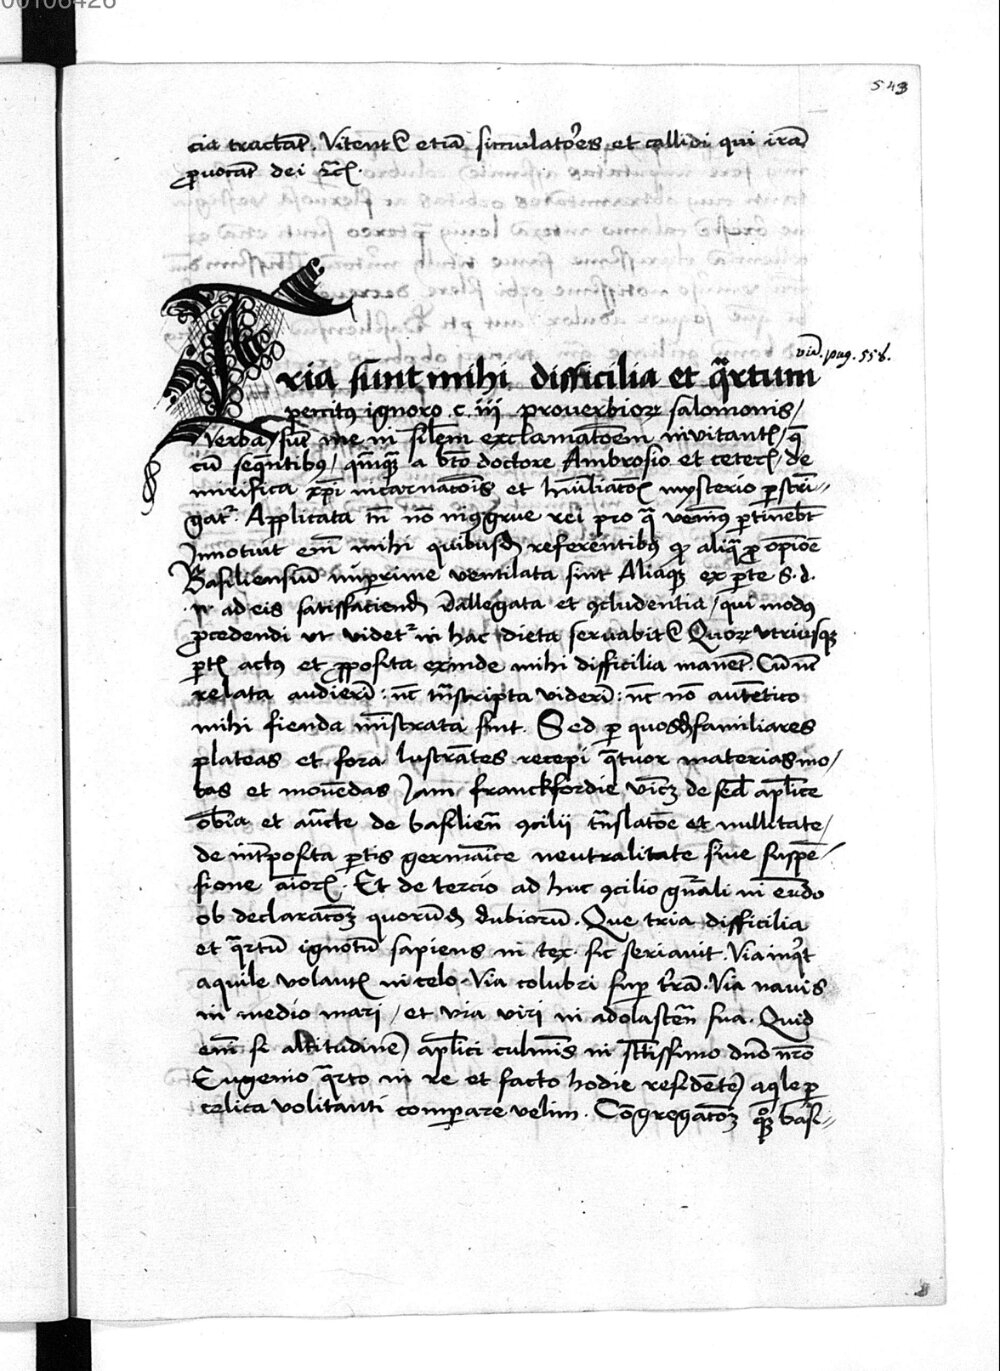 00106426
543
cia tractat̄. Vitent᷑ etiā simulatores et callidi qui irā
ꝓuocāt dei &c̄.
vid. pag. 558.
Tria sunt mihi difficilia et qᷓrtum
penitꝰ ignoro .c. iij proverbioꝝ salomonis /
Verba sūt me in silem exclamatōem invitantꝭ / q̄
cū seqn̄tibꝰ / qm̄qꝫ a bt̄o doctore Ambrosio et ceterꝭ / de
mirifica xp̄i incarnatōis et hūiliatōꝭ mysterio ꝑstri=
gat᷑. Applicata tn̄ nō incōgrue rei pro qᷓ venimꝰ ꝑtinebt̄
Innotuit em̄ mihi quibusdā referentibꝰ qꝫ aliqᷓ ꝓ opiōe
Basiliensiū nuꝑrime ventilata sint Aliaqꝫ ex ꝑte s. d.
n̄ ad eis satisfaciendū allegata et ꝯcludentia / qui modꝰ
ꝓcedendi ut videt᷑ in hac dieta servabit᷑ Quoꝝ utriusqꝫ
ꝑtꝭ actꝰ et ꝓposita exinde mihi difficilia manēt. Cū nc̄
relata audierī: nc̄ trn̄scripta viderī: nc̄ nō autētico
mihi fienda mīstrata sint. Sed ꝑ quosdā familiares
plateas et fora lustrātes recepi qᷓtuor materias mo /
tas et movēdas Jam franckfordie vicꝫ de sed̄ aplice
obīa et auc̄te de basilien̄ ꝯcilii trn̄slatōe et nullitate /
de int̄posita ꝑtis germāice neutralitate sive suspē /
sione aīorꝭ. Et de tercio ad huc ꝯcilio gn̄ali in em̄do
ob declaracōꝫ quorūdā dubiorū. Que tria difficilia
et qᷓrtū ignotū sapiens in tex. sic seriavit. Via inqt
aquile volantꝭ in celo. Via colubri suꝑ t̄rā. Via navis
in medio mari / et via viri in adolascen̄ sua. Quid
em̄ si altitudinē aplici culmīs in sc̄tissimo dn̄o nr̄o
Eugenio qᷓrto in re et facto hodie residēte aqle ꝑ
celica volitanti comparare velim. Cōgregacōꝫ qꝫ basi=